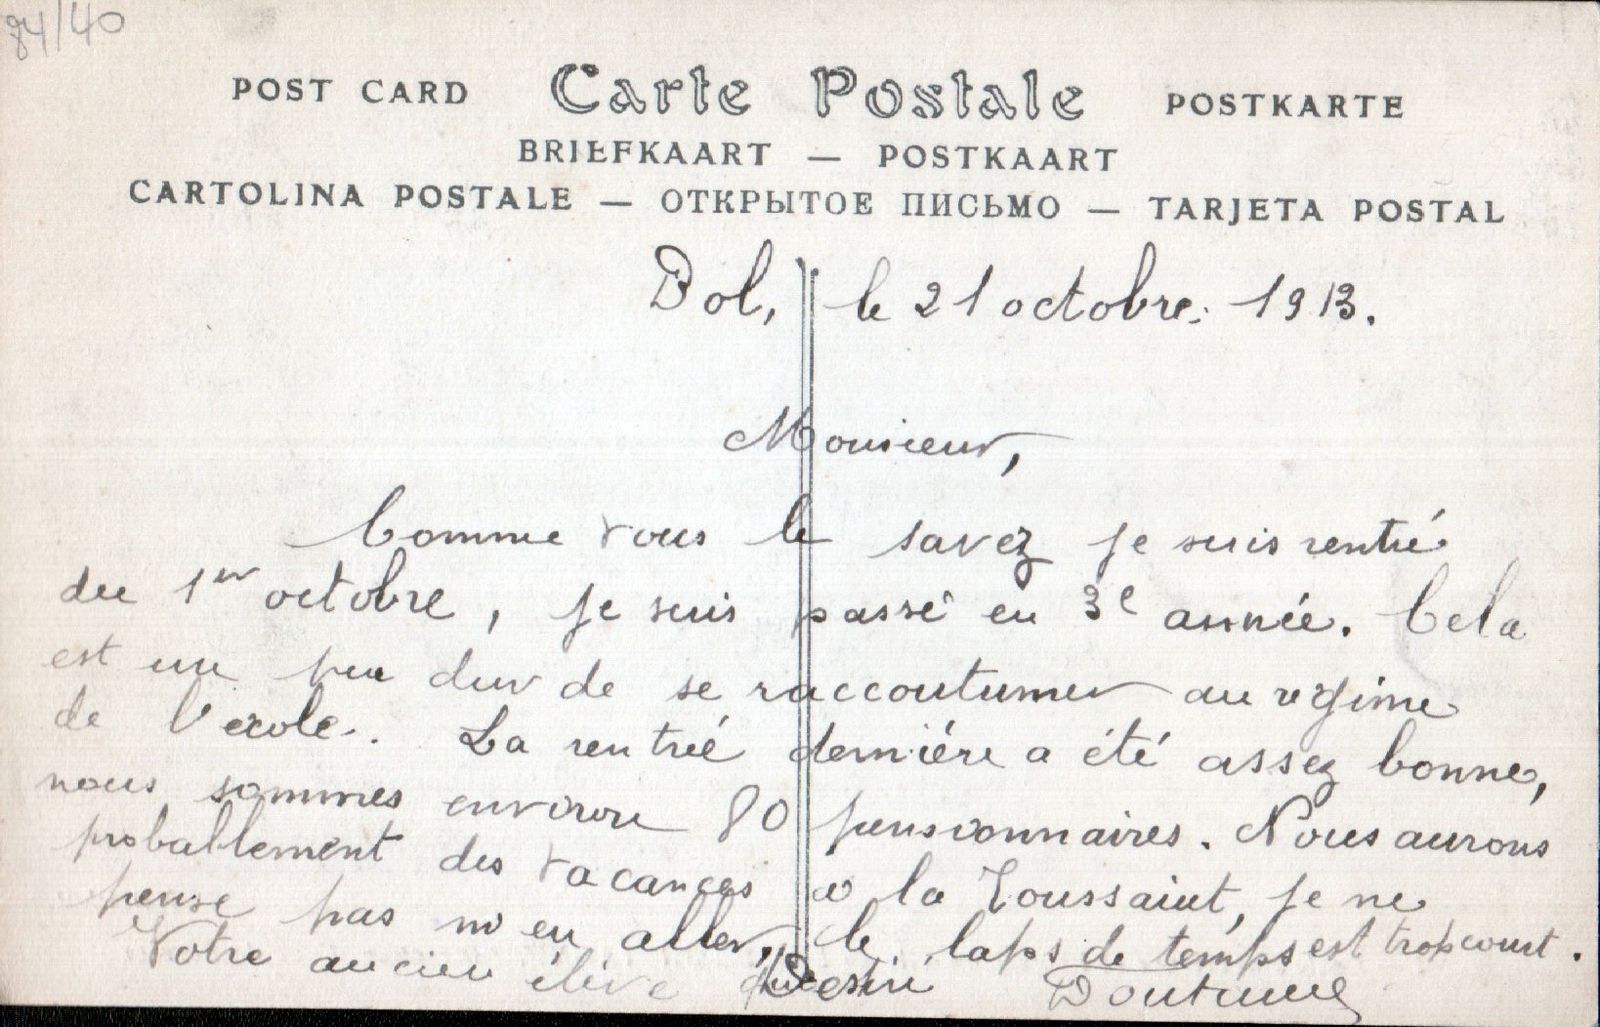 84/40
POST CARD Carte Postale POSTKARTE
BRIEFKAART — POSTKAART
CARTOLINA POSTALE — ОТКРЫТОЕ ПИСЬМО — TARJETA POSTAL
Dol, le 21 octobre 1913.
Monsieur,
Comme vous le savez je suis rentré
du 1er octobre, je suis passé en 3e année. Cela
est un peu dur de se raccoutumer au régime
de l'ecole. La rentrée dernière a été assez bonne,
nous sommes environ 80 pensionnaires. Nous aurons
proballement des vacances à la Toussaint, je ne
pense pas m'en aller, le laps de temps est trop court.
Votre ancien élève Désiré